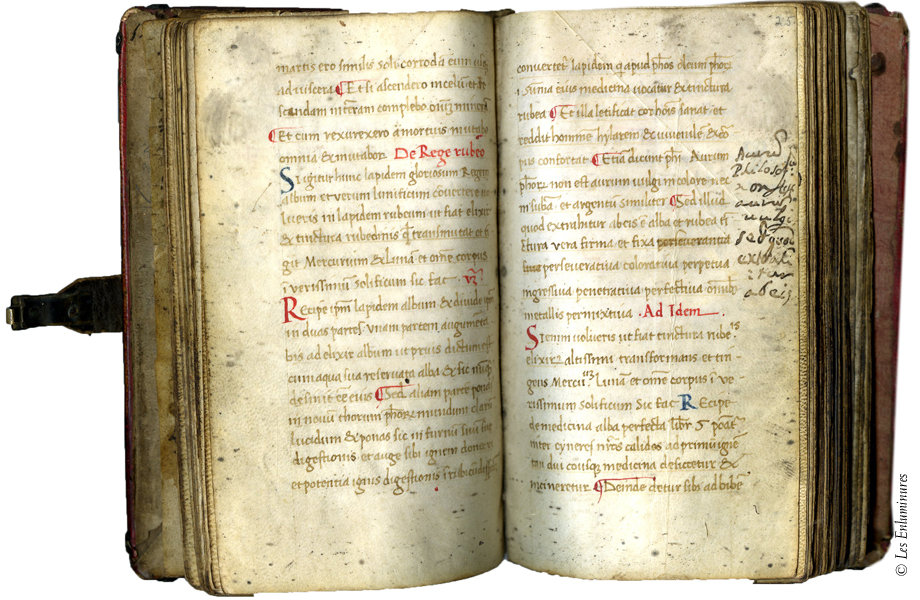 martis ero similis soli corroda eum usq
ad viscera ¶ Et si ascendero in celum et des
scendam in terram complebo oīuʒ minera
¶ Et cum rexurexero a mortuis mutabo
omnia & mutabor De Rege rubeo
Si igitur hunc lapidem gloriosum Regem
album et verum lunificum covertere
lueris in lapidem rubeum ut fiat elixir
& tinctura rubedinis q̄ transmutat et ti
git Mercurium & lunā et omē corpus
i verissimū solificum sic fac
Recipe ipm̄ lapidem album & divide ipm̄
in duas partes unam partem augmēta
bis ad elixir album ut prius dictum est
cum aqua sua reservata alba & sic
desinit esse eius ¶ Sed aliam partē ponas
in novū thorum ph̄orꝝ mundum clarū
lucidum & ponas sic in furnū suū
digestionis et auge sibi ignem donec
et potentia ignis digestionis
25
convertet̄ lapidem q̄ apud ph̄os oleum ph̄orꝝ
i summa eius medicina vocatur & tinctura
rubea ¶ Et illa letificat cor hōis sanat et
reddit hominē hylarem & iuvenilē &
pus confortat ¶ Etiā dicunt ph̄i Aurum
ph̄orꝝ non est aurum vulgi in colore nec
in subā et argentū similiter ¶ Sed illud
quod extrahitur ab eis ē alba et rubea ti
ctura vera firma et fixa perseverantia
perseverativa colorativa perpetua
ingressiva penetrativa perfectiva
metallis permixtiva Ad Idem
Si enim volueris ut fiat tinctura rube
elixirꝝ altissimi transformans et tin
gens Mercu Lunā et omē corpus i ve
rissimum solificum Sic fac Recipe
de medicina alba perfecta libr̄ 5 poat̄
inter cyneres nr̄os calidos ad primū ignē
tan diu cousqꝫ medicina desiccetur &
incineretur ¶ Deinde detur sibi ad bibē
Aurū
Philosoph
non est
aurū
vulgi
sed quod
extrahi
tur
ab eis
© Les Enluminures